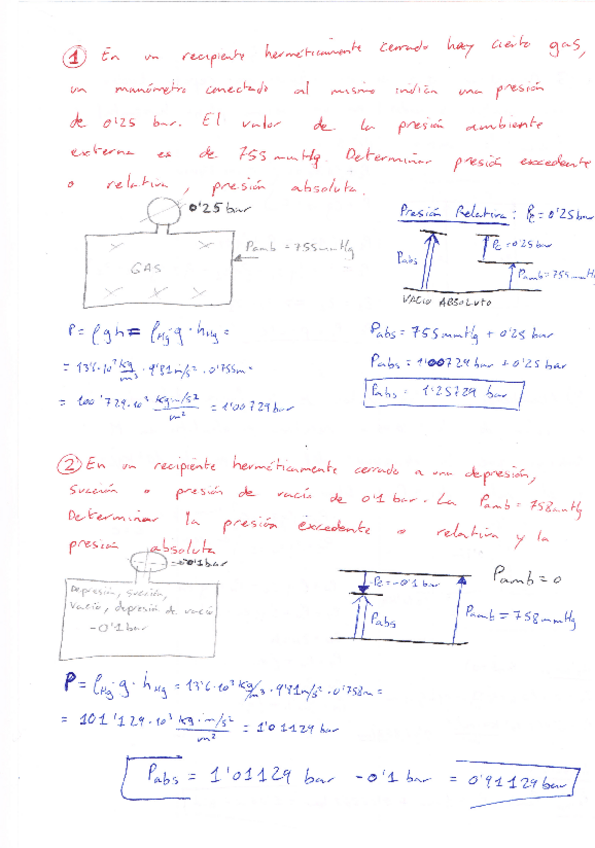 ① En un recipiente herméticamente cerrado hay cierto gas,
un manómetro conectado al mismo indica una presión
de 0'25 bar. El valor de la presión ambiente
externa es de 755 mmHg. Determinar presión excedente
o relativa, presión absoluta.
0'25 bar
Pamb = 755 mmHg
GAS
Presión Relativa: Pe = 0'25 bar
Pabs
Pe = 0'25 bar
Pamb = 755 mmH
VACIO ABSOLUTO
P = ρgh = ρHg · g · hHg =
= 13'6·10³ kg/m³ · 9'81 m/s² · 0'755m =
= 100'729·10³ kg·m/s²/m² = 1'00729 bar
Pabs = 755 mmHg + 0'25 bar
Pabs = 1'00729 bar + 0'25 bar
Pabs = 1'25729 bar
② En un recipiente herméticamente cerrado a una depresión,
succión o presión de vacío de 0'1 bar. La Pamb = 758 mmHg
Determinar la presión excedente o relativa y la
presión absoluta
-0'1 bar
Depresión, succión,
vacío, depresión de vacío
-0'1 bar
Pe = -0'1 bar
Pabs
Pamb = 0
Pamb = 758 mmHg
P = ρHg · g · hHg = 13'6·10³ kg/m³ · 9'81 m/s² · 0'758m =
= 101'129·10³ kg·m/s²/m² = 1'01129 bar
Pabs = 1'01129 bar - 0'1 bar = 0'91129 bar